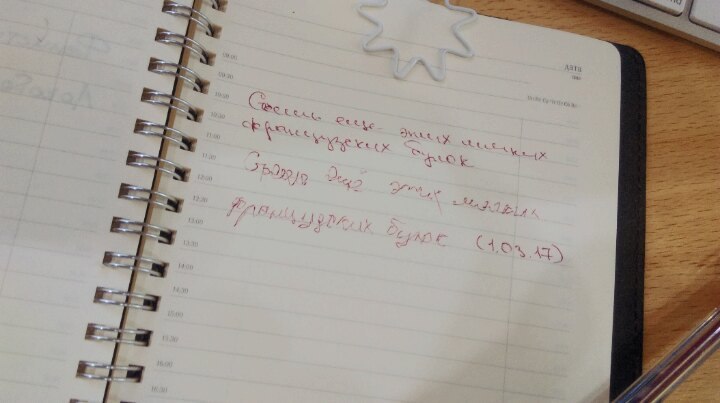 дата
09:00
09:30
10:00
Съешь еще этих мягких
10:30
французских булок
11:00
11:30
ещё этих мягких
12:00
12:30
французских булок (1.03.17)
13:00
13:30
14:00
14:30
15:00
16:00
16:30